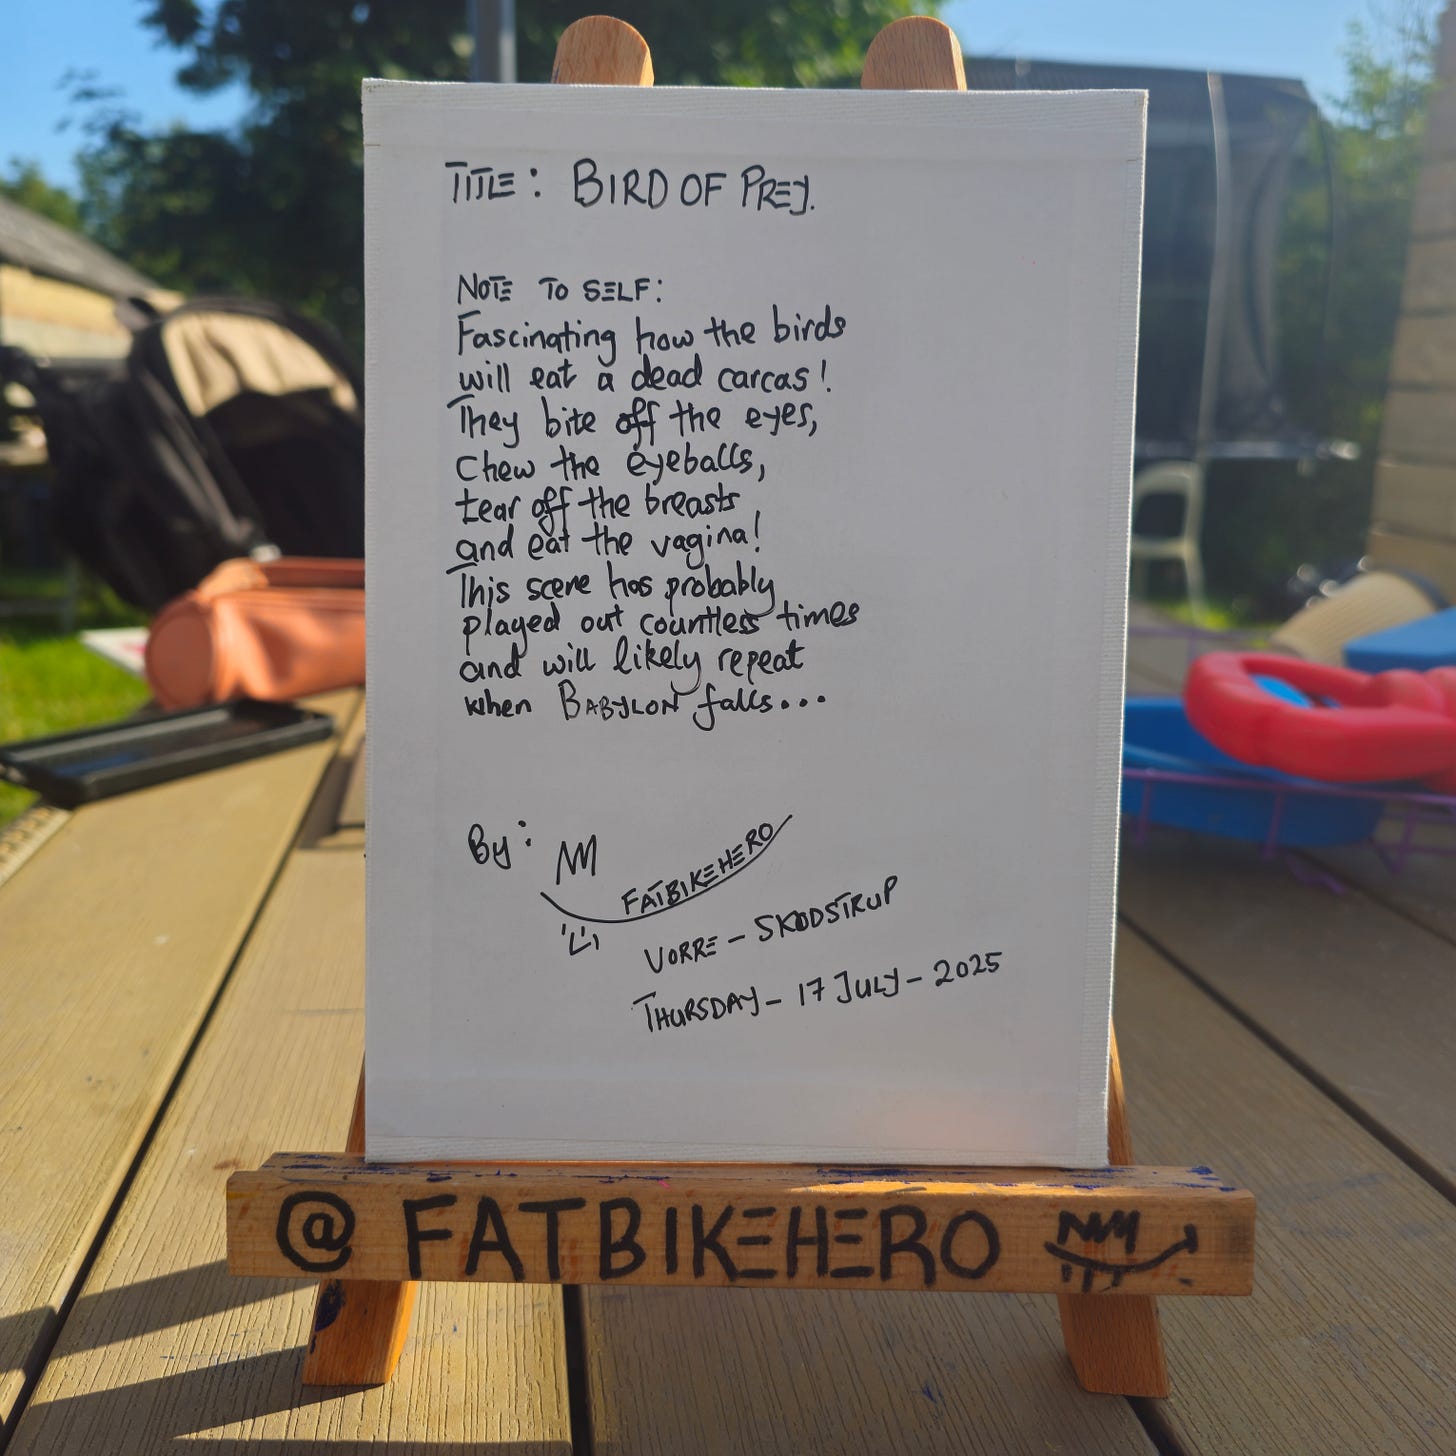 TITLE: BIRD OF PREY.
NOTE TO SELF:
Fascinating how the birds
will eat a dead carcas!
They bite off the eyes,
Chew the eyeballs,
tear off the breasts
and eat the vagina!
This scene has probably
played out countless times
and will likely repeat
when BABYLON falls...
By:
FATBIKEHERO
VORRE - SKØDSTRUP
THURSDAY - 17 JULY - 2025
@FATBIKEHERO